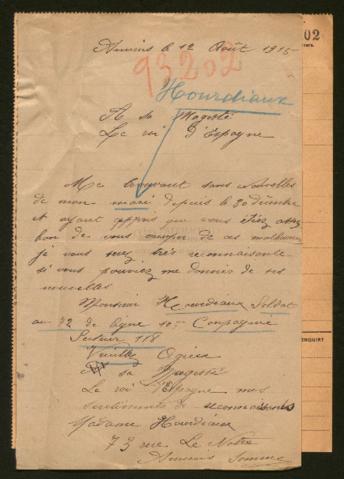 Amiens le 12 Août 1915
93202
Hourdiaux
A sa Magesté
Le roi d'Espagne
Me trouvant sans nouvelles
de mon mari depuis le 30 décembre
et ayant appris que vous étiez assez
bon de vous occuper de ces malheureux
je vous serez très reconnaissante
si vous pouviez me donnés de ses
nouvelles
Monsieur Hourdiaux Soldat
au 72 de ligne 10me Compagnie
Secteur 118
Veuillez Agréer
A sa Magesté
Le roi d'Espagne mes
sentiments de reconnaissantes
Madame Hourdiaux
73 rue Le Notre
Amiens Somme
02